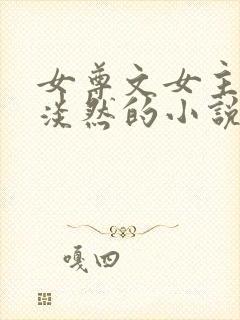 女尊文女主
淡然的小説
嘎四